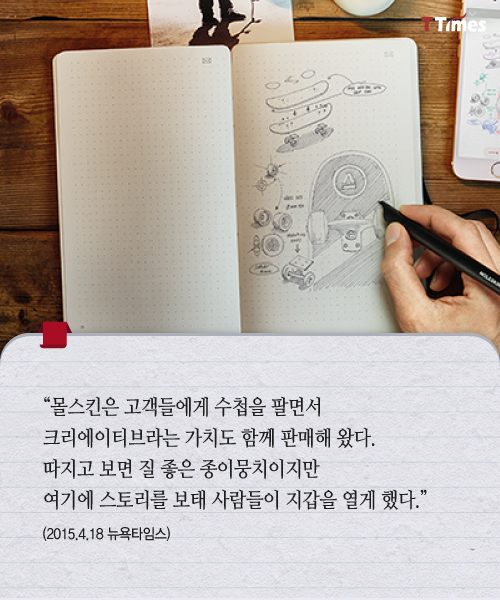 T Times
“몰스킨은 고객들에게 수첩을 팔면서
크리에이티브라는 가치도 함께 판매해 왔다.
따지고 보면 질 좋은 종이뭉치이지만
여기에 스토리를 보태 사람들이 지갑을 열게 했다.”
(2015.4.18 뉴욕타임스)